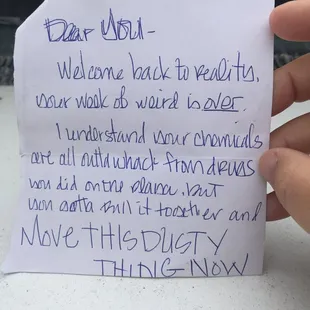 Dear YOU-
Welcome back to reality.
your week of weird is over.
I understand your chemicals
are all outta whack from drugs
you did on the playa. but
you gotta pull it together and
MOVE THIS DUSTY
THING NOW